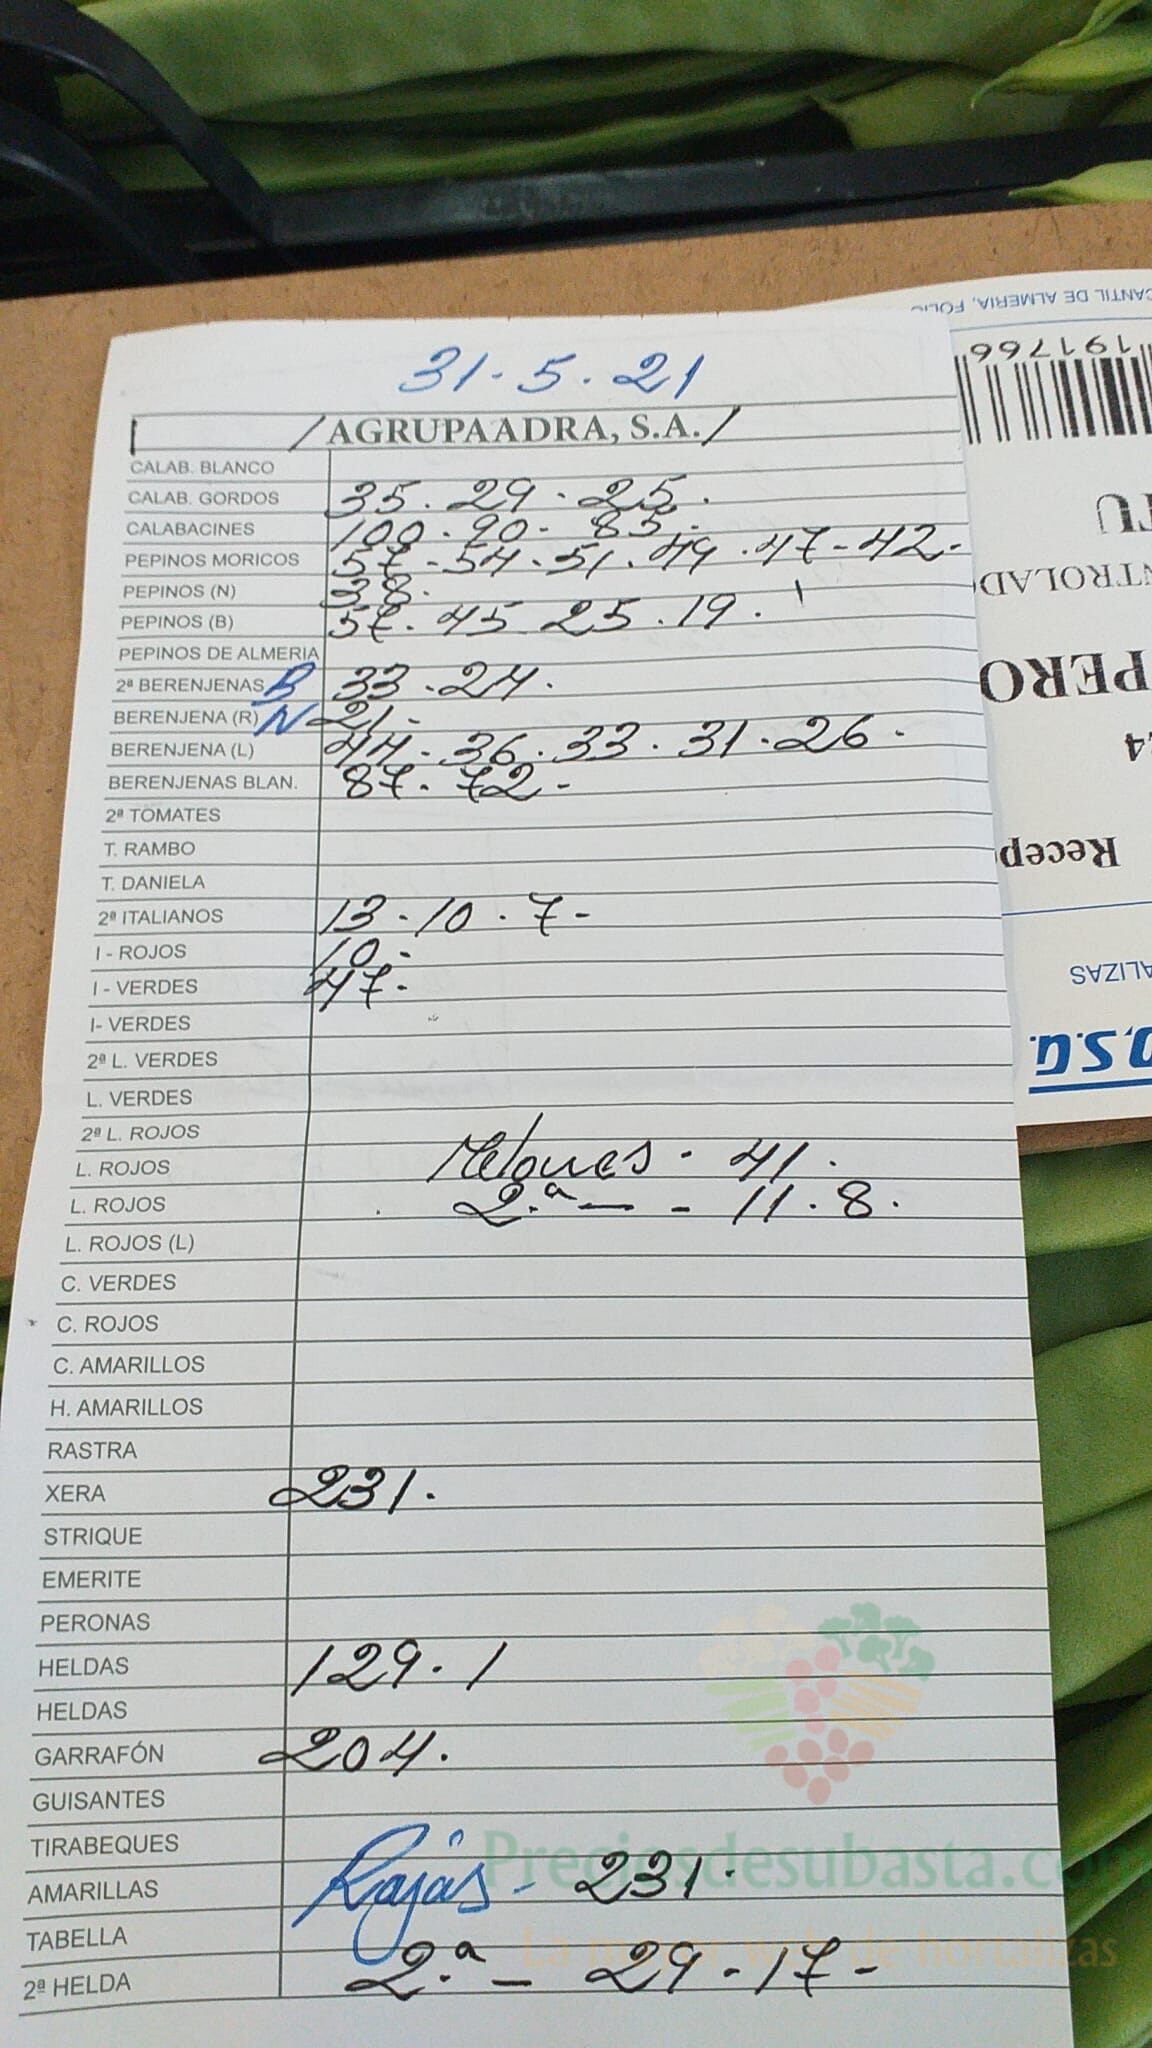 31.5.21
/AGRUPAADRA, S.A./
CALAB. BLANCO
CALAB. GORDOS 35. 29. 25.
CALABACINES 100. 90- 85.
PEPINOS MORICOS 57-54.51.49.47-42-
PEPINOS (N) 38.
PEPINOS (B) 57. 45 25.19.
PEPINOS DE ALMERIA
2ª BERENJENAS B 33.24.
BERENJENA (R) N 21-
BERENJENA (L) 44-36.33.31.26-
BERENJENAS BLAN. 87. 72-
2ª TOMATES
T. RAMBO
T. DANIELA
2ª ITALIANOS 13.10.7-
I - ROJOS 10-
I - VERDES 47.
I- VERDES
2ª L. VERDES
L. VERDES
2ª L. ROJOS
L. ROJOS Melones. 41.
L. ROJOS 2.ª - - 11.8.
L. ROJOS (L)
C. VERDES
C. ROJOS
C. AMARILLOS
H. AMARILLOS
RASTRA
XERA 231.
STRIQUE
EMERITE
PERONAS
HELDAS 129.1
HELDAS
GARRAFÓN 204.
GUISANTES
TIRABEQUES
AMARILLAS Rajas - 231.
TABELLA
2ª HELDA 2.ª - 29-17-
Preciosdesubasta.co
La mejor web de hortalizas
CANTIL DE ALMERIA, FOLIO
191766
TU
NTROLAD
PERO
Recep
ALIZAS